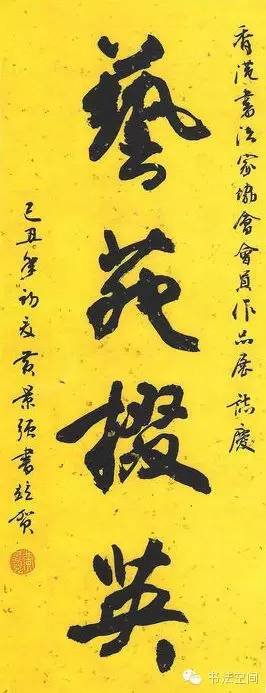 香港書法家協會會員作品展誌慶
藝苑掇英
己丑年初夏黄景强書於賀
书法空间